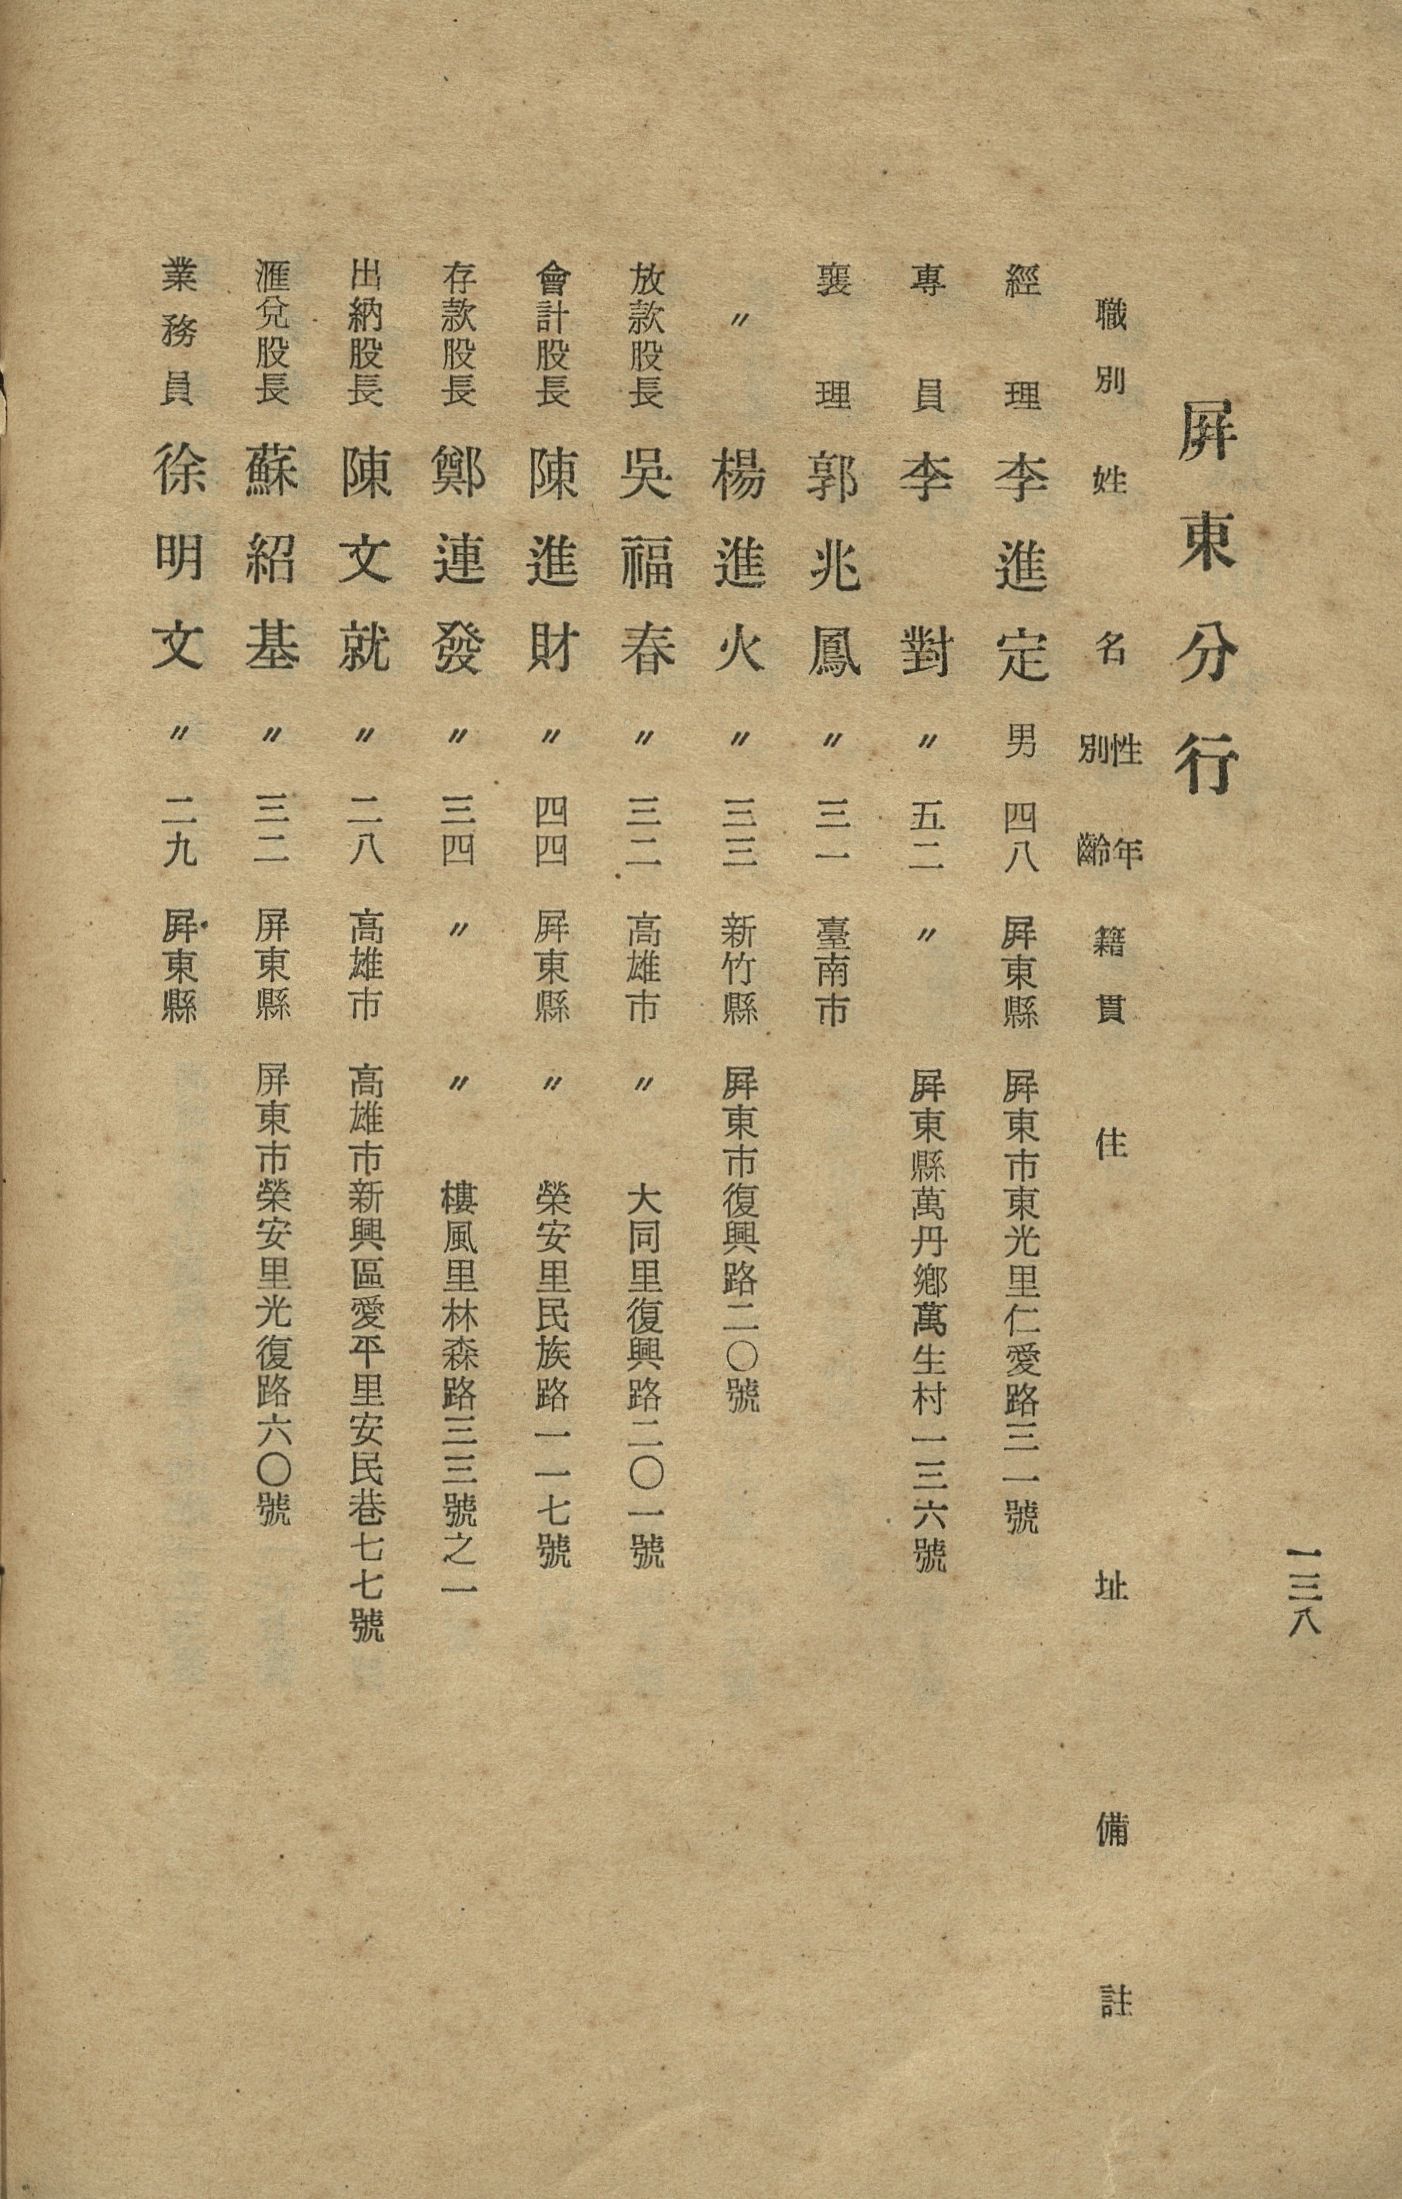 一三八
屏東分行
職別 姓名 性別 年齡 籍貫 住址 備註
經理 李進定 男 四八 屏東縣 屏東市東光里仁愛路三一號
專員 李對 〃 五二 〃 屏東縣萬丹鄉萬生村一三六號
襄理 郭兆鳳 〃 三一 臺南市
〃 楊進火 〃 三三 新竹縣 屏東市復興路二〇號
放款股長 吳福春 〃 三二 高雄市 〃 大同里復興路二〇一號
會計股長 陳進財 〃 四四 屏東縣 〃 榮安里民族路一一七號
存款股長 鄭連發 〃 三四 〃 〃 樓風里林森路三三號之一
出納股長 陳文就 〃 二八 高雄市 高雄市新興區愛平里安民巷七七號
滙兌股長 蘇紹基 〃 三二 屏東縣 屏東市榮安里光復路六〇號
業務員 徐明文 〃 二九 屏東縣